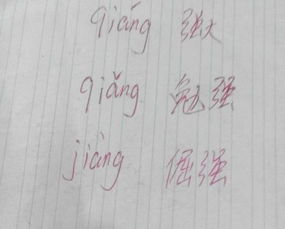 qiáng 强大
qiǎng 勉强
jiàng 倔强